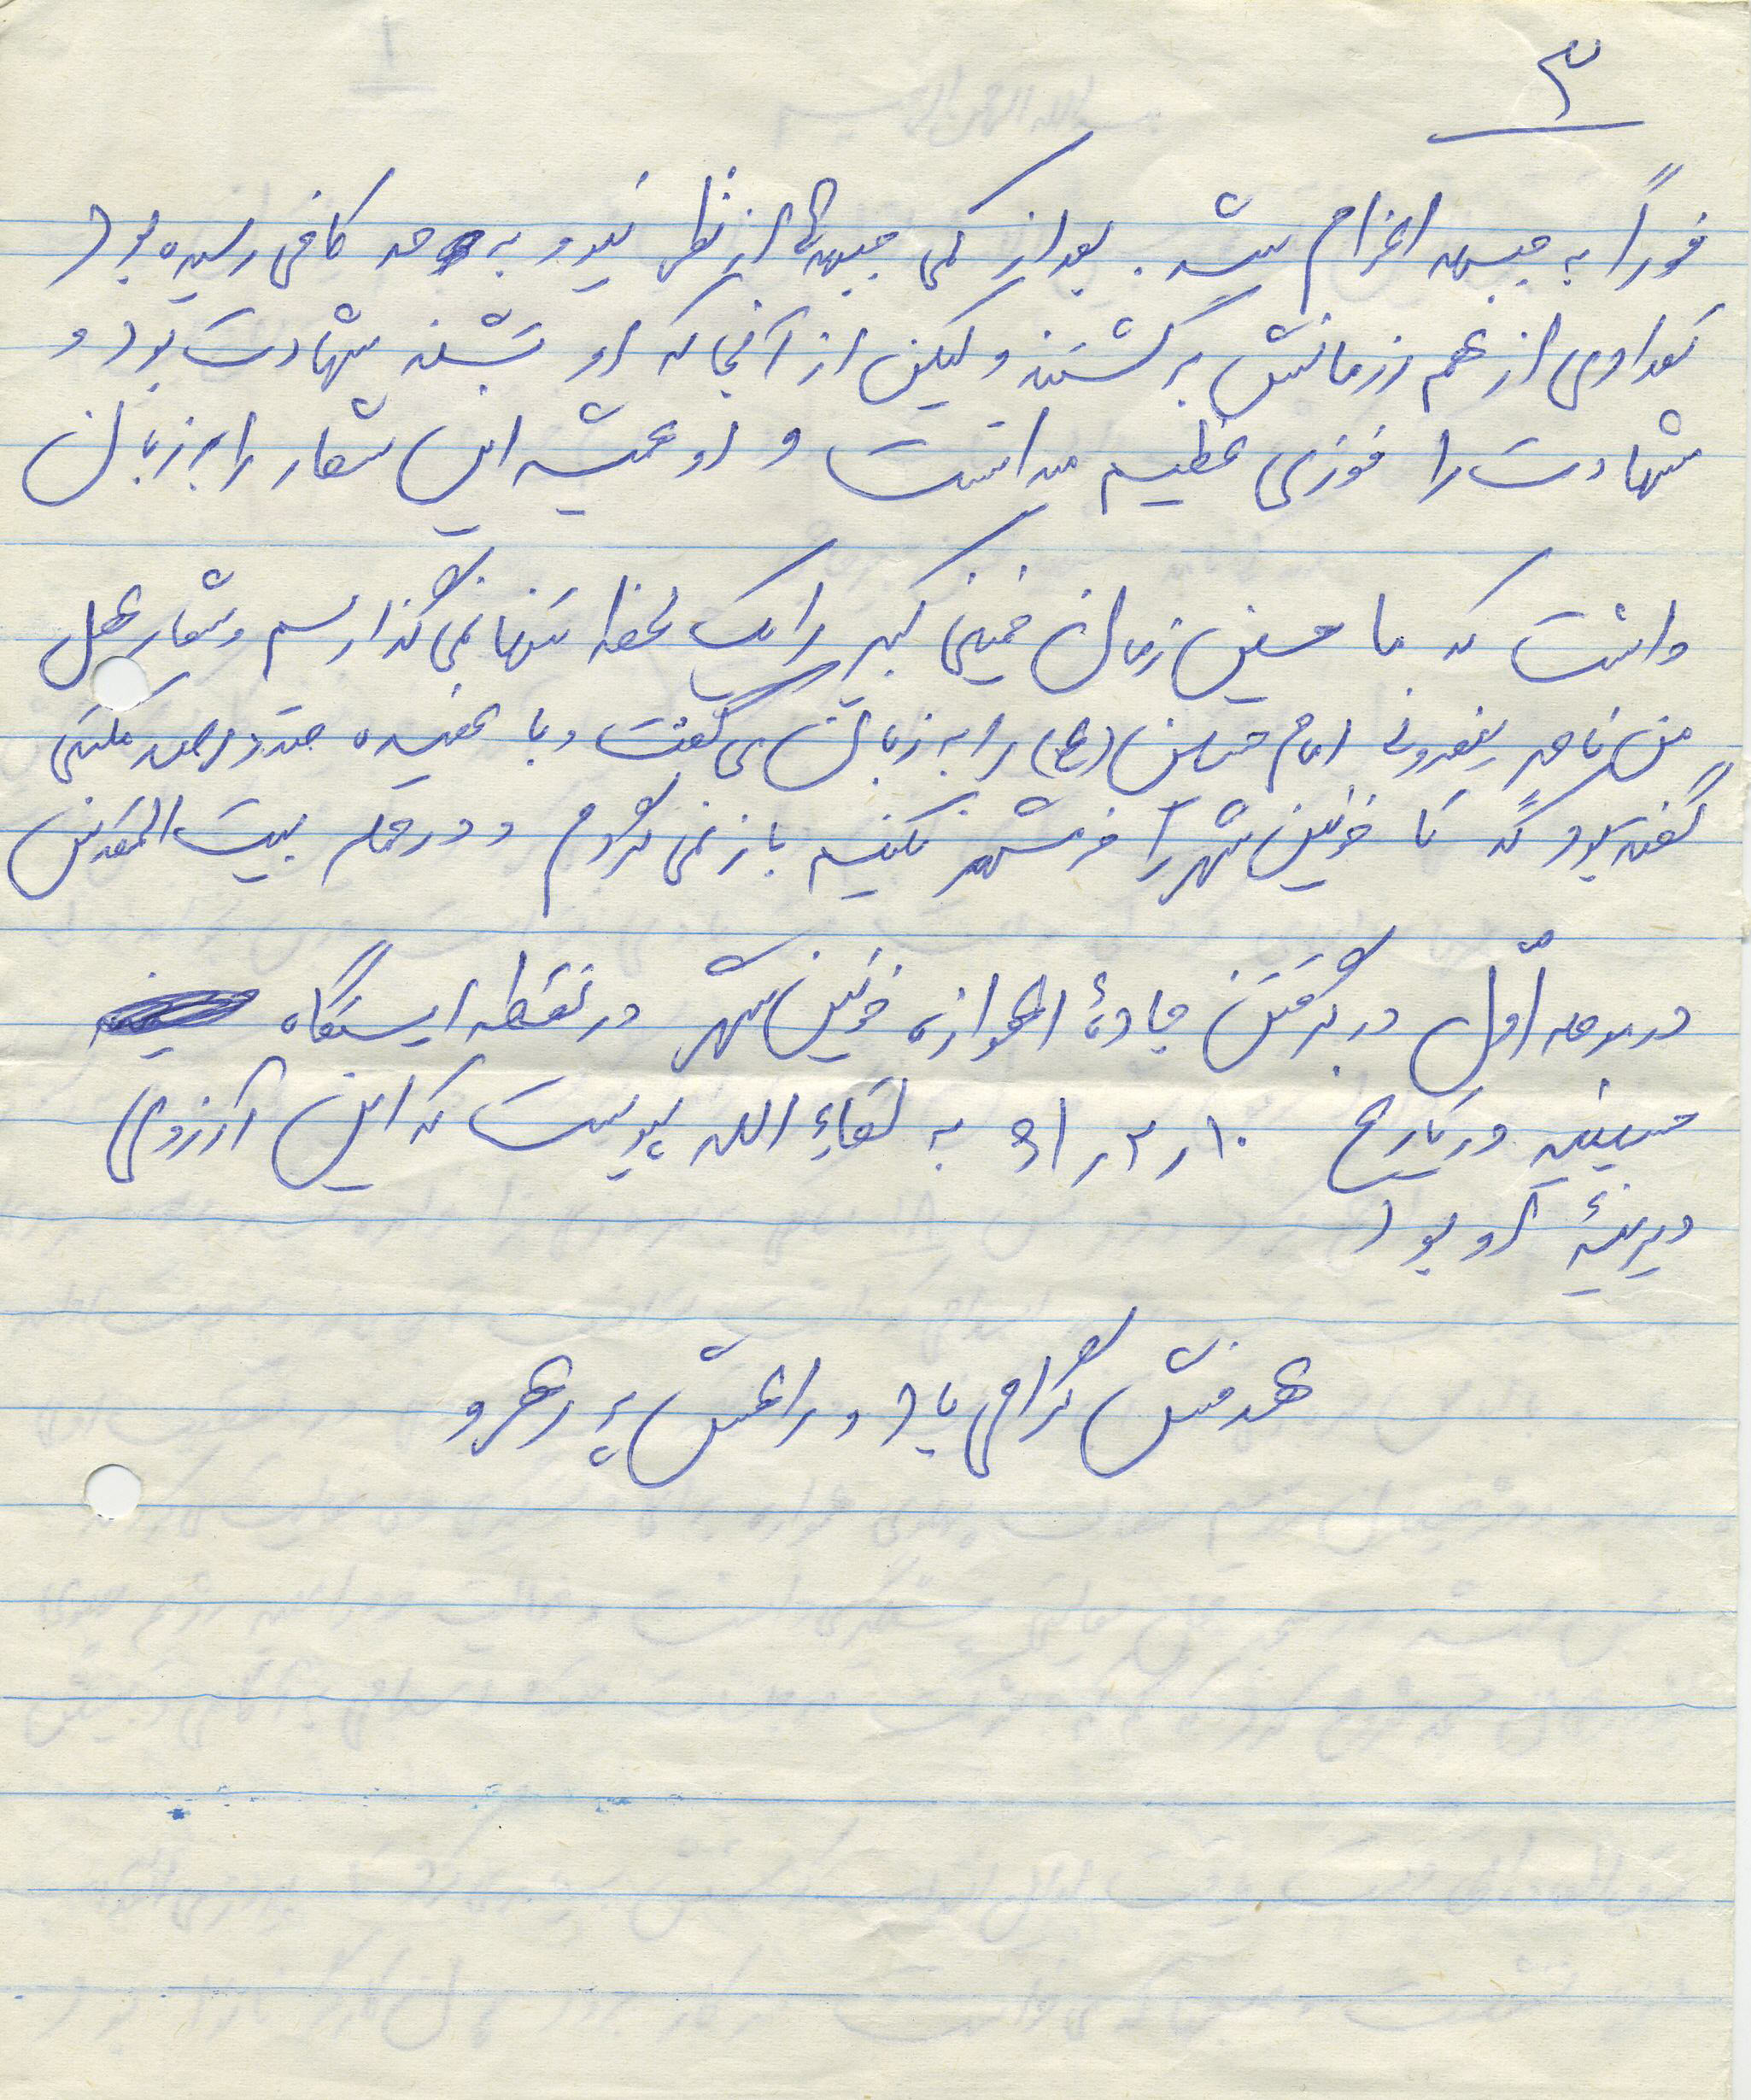 ۳
فوراً به جبهه اعزام شد. بعد از کمی جبهه‌ها از نظر نیرو به حد کافی رسیده بود
تعدادی از هم رزمانش برگشتند ولیکن از آنجا که او تشنه شهادت بود و
شهادت را فوزی عظیم میدانست و او همیشه این شعار را بر زبان
داشت که ما حسین زمان خمینی کبیر را یک لحظه تنها نمی گذاریم و شعار هل
من ناصر ینصرونی امام حسین (ع) را به زبان می گفت و با عقیده صد در صد مکتبی
گفته بود که تا خونین شهر را خرمشهر نکنیم باز نمی گردم و در حمله بیت المقدس
در مرحله اوّل در گرفتن جادهٔ اهواز خونین شهر در نقطه ایستگاه
حسینیه در تاریخ ۱۰ر۲ر۶۱ به لقاءِ الله پیوست که این آرزوی
دیرینهٔ او بود
هدفش گرامی باد و راهش پر رهرو